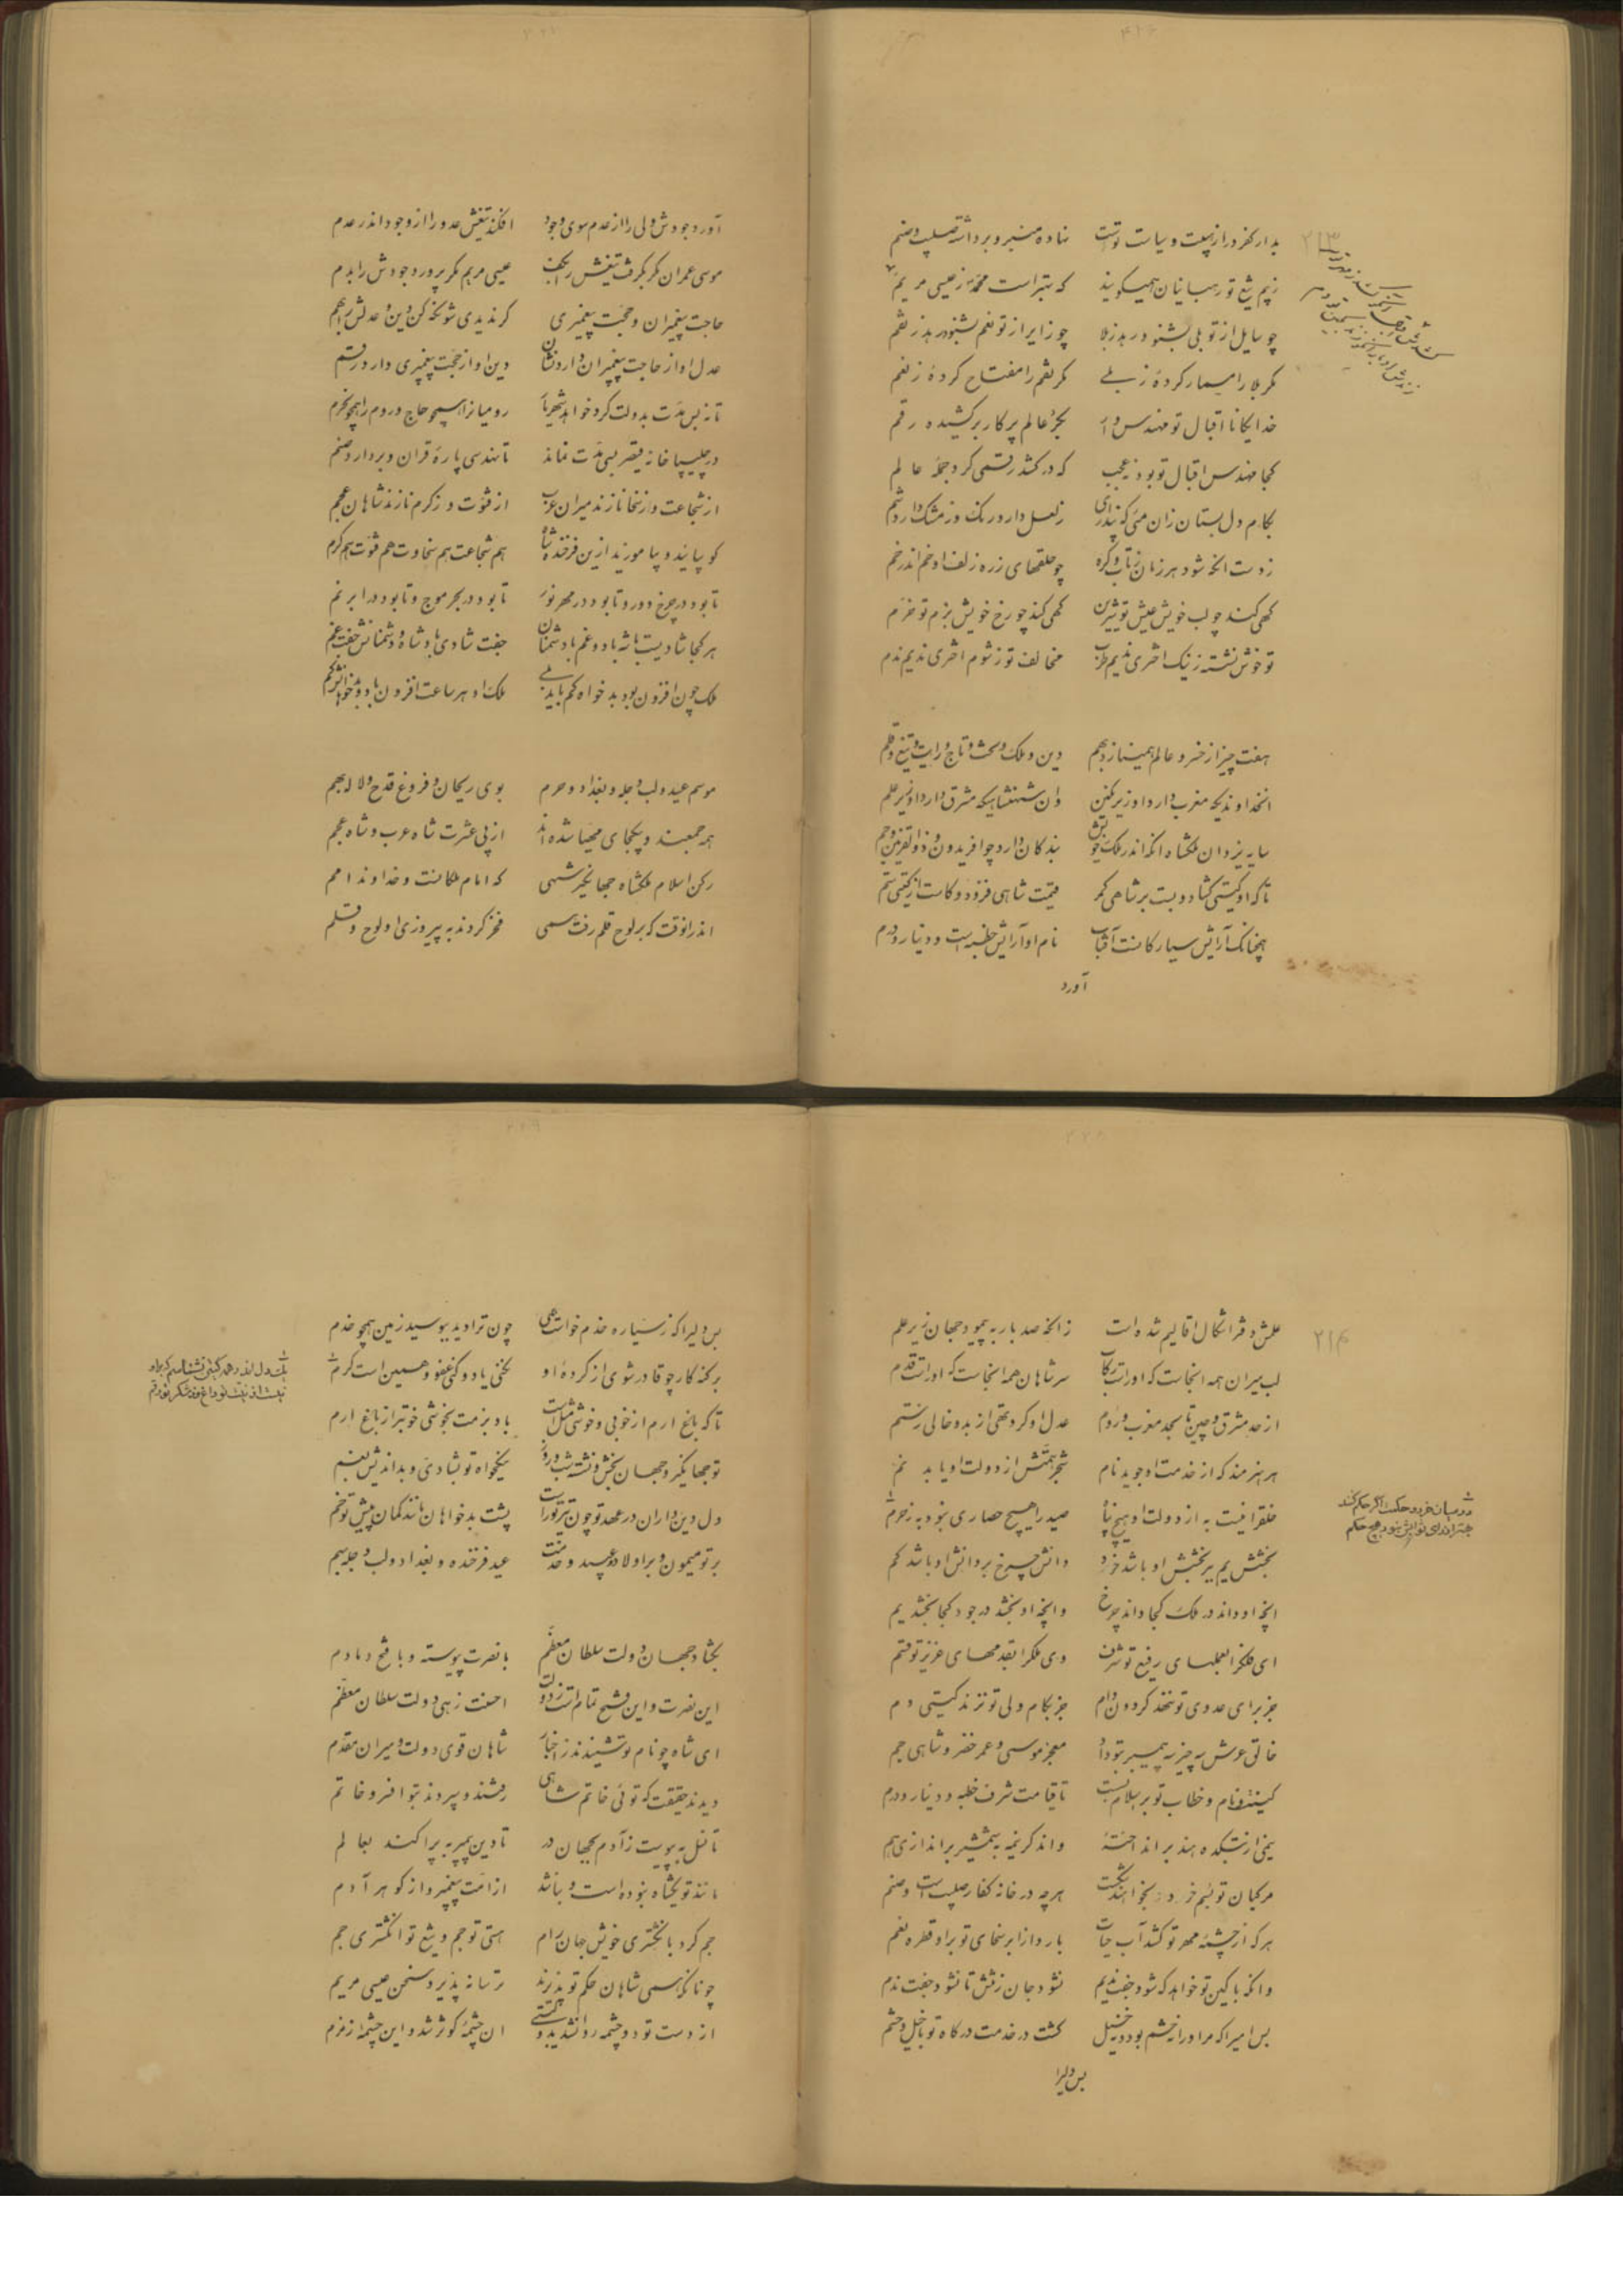 بدار کفر در از هیبت و سیاست تست نهاده منبر و برداشته صلیب و صنم
ز بیم تیغ تو رهبانیان همیگویند که بهتر است محمد ز عیسی مریم
چو سایل از تو بلی بشنود رهد ز بلا چو زایر از تو نعم بشنود رهد ز نقم
مگر بلا را مسمار کرده ز بلی مگر نعم را مفتاح کرده ز نعم
خدایگانا اقبال تو مهندس وار بجزء عالم پرکار برکشیده رقم
کجا مهندس اقبال تو بود نه عجب که درکشد رقمی گرد جمله عالم
بکام دل بستان زان مئی که پنداری ز لعل دارد رنک و ز مشک دارد شم
ز دست انکه شود هر زمان ز تاب و گره چو حلقهای زره زلف او خم اندر خم
کهی کند چو لب خویش عیش تو شیرین کهی کند چو رخ خویش بزم تو خرم
تو خوش نشسته ز نیک اختری ندیم طرب مخالف تو ز شوم اختری ندیم ندم
هفت چیز از خسرو عالم همینازد بهم دین و ملک و تخت و تاج و رایت و تیغ و قلم
انخداوندیکه مغرب دارد او زیر نگین وان شهنشاهیکه مشرق دارد او زیر علم
سایه یزدان ملکشاه انکه اندر ملک خویش بندگان دارد چو افریدون و ذوالقرنین و جم
تا که او گیتی گشاد و بست بر شاهی کمر قیمت شاهی فزود و کاست از گیتی ستم
همچنانک آرایش سیارکانست آفتاب نام او آرایش خطبه است و دینار و درم
آورد
آورد جودش ولی را از عدم سوی وجود افکند تیغش عدو را از وجود اندر عدم
موسی عمران مگر بگرفت تیغش را بکف عیسی مریم مگر پرورد جودش را بدم
حاجت پیغمبران و حجت پیغمبری گر ندیدی شو نگه کن دین و عدلش را بهم
عدل او از حاجت پیغمبران دارد نشان دین او از حجت پیغمبری دارد رقم
تا نه بس مدت بدولت کرد خواهد شهریار رومیانرا همچو حاج و روم را همچو حرم
در چلیپا خانه قیصر بسی مدت نماند تا نهد سی پاره قران و بردارد صنم
از شجاعت وز سخا نازند میران عرب از فتوت وز کرم نازند شاهان عجم
گو بیائید و بیاموزید ازین فرخنده شاه هم شجاعت هم سخاوت هم فتوت هم کرم
تا بود در چرخ دور و تا بود در مهر نور تا بود در بحر موج و تا بود در ابر نم
هر کجا شادیست باشه باد و غم با دشمنان جفت شادی باد شاه و دشمنانش جفت غم
ملک چون افزون بود بدخواه کم باید بلی ملک او هر ساعت افزون باد و بدخواهانش کم
موسم عید و لب دجله و بغداد و حرم بوی ریحان و فروغ قدح و لاله بهم
همه جمعند و بیکجای مهیا شده اند از پی عشرت شاه عرب و شاه عجم
رکن اسلام ملکشاه جهانگیر شهی که امام ملکانست و خداوند امم
اندرانوقت که بر لوح قلم رفت همی فخر کردند به پیروزی او لوح و قلم
۲۱۴
علمش دفتر اشکال اقالیم شده است زانکه صد بار بپیمود جهان زیر علم
لب میران همه انجاست که او راست رکاب سر شاهان همه انجاست که او راست قدم
از حد مشرق و چین تا بحد مغرب و روم عدل او کرد تهی از بد و خالی ز ستم
هر هنرمند که از خدمت او جوید نام شجر همتش از دولت او یابد نم
خلقرا نیست به از دولت او هیچ پناه صید را هیچ حصاری نبود به ز حرم
بخشش یم بر بخشش او باشد خرد دانش چرخ بر دانش او باشد کم
انچه او داند در ملک کجا داند چرخ وانچه او بخشد در جود کجا بخشد یم
ای فلکرا بعلمهای رفیع تو شرف وی ملکرا بقدمهای عزیز تو قسم
جز برای عدوی تو ننهد گردون دام جز بکام ولی تو نزند گیتی دم
خالق عرش سه چیز سه پیمبر بتو داد معجز موسی و عمر خضر و شاهی جم
کنیت و نام و خطاب تو بر اسلام بست تا قیامت شرف خطبه و دینار و درم
نیمی از بتکده هند برانداخته واندگر نیمه بشمشیر براندازی هم
هرچه در خانه کفار صلیب است و صنم
هر که از چشمه مهر تو کشد آب حیات بارد از ابر سخای تو برو قطره نعم
وانکه با کین تو خواهد که شود جفت ندیم نشود جان ز تنش تا نشود جفت ندم
بس امیرا که مر او را حشم بود و خیل گشت در خدمت درگاه تو با خیل و حشم
بس دلیرا
بس دلیرا که ز سیاره خدم خواست همی چون ترا دید ببوسید زمین همچو خدم
برگنه کار چو قادر شوی از کرده او نکنی یاد و کنی عفو و همین است کرم
تا که باغ ارم از خوبی و خوشی مثل است باد بزمت بخوشی خوبتر از باغ ارم
تو جهانگیر و جهان بخش و نشسته شب و روز نیکخواه تو بشادی و بداندیش بغم
دل دین داران در عهد تو چون تیر تو راست پشت بدخواهان مانند کمان پیش تو خم
بر تو میمون و بر اولاد و عبید و خدمت عید فرخنده و بغداد و لب دجله بهم
بگشاد جهان دولت سلطان معظم با نصرت پیوسته و با فتح دمادم
این نصرت و این فتح تمام است ز دولت احسنت زهی دولت سلطان معظم
ای شاه چو نام تو شنیدند ز اخبار شاهان قوی دولت و میران مقدم
دیدند حقیقت که توئی خاتم شاهی رفتند و سپردند بتو افسر و خاتم
تا نسل بپیوست ز آدم بجهان در تا دین پیمبر بپراکند بعالم
مانند تو یکشاه نبوده است و نباشد از امت پیغمبر و از گوهر آدم
جم کرد بانگشتری خویش جهان رام هستی تو جم و تیغ تو انگشتری جم
چونانکه همی شاهان حکم تو پذیرند ترسا نه پذیرد سخن عیسی مریم
از دست تو دو چشمه روانشد به دو گیتی ان چشمه کوثر شد و این چشمه زمزم